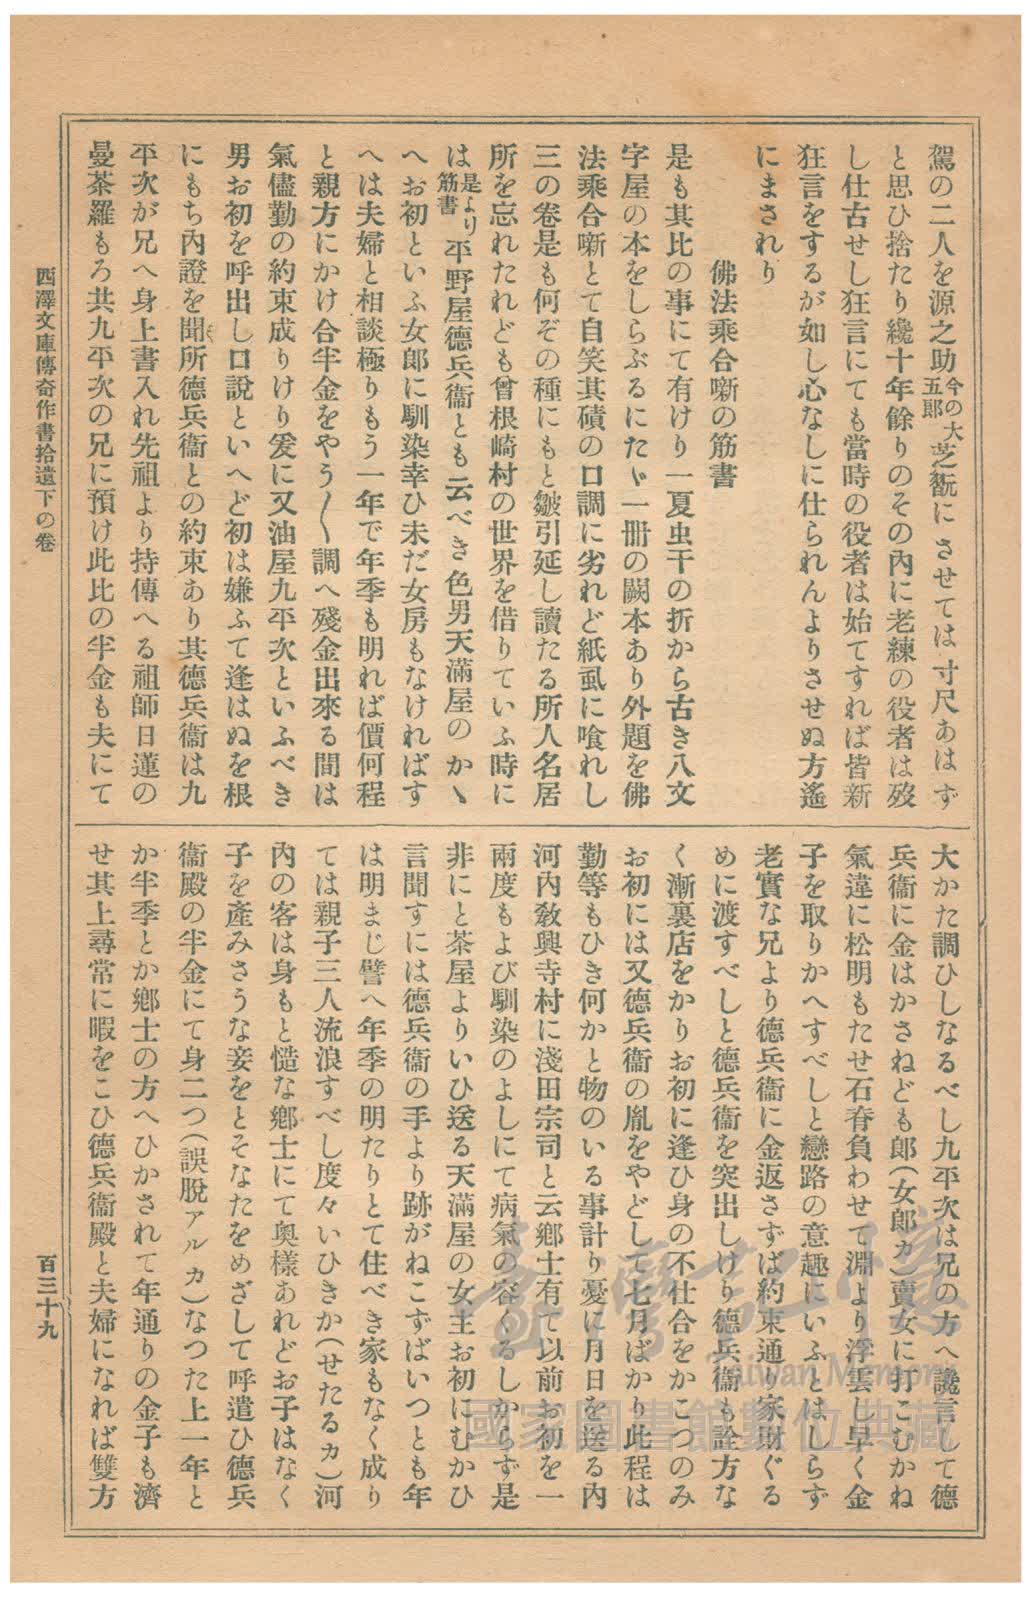 駕の二人を源之助今の大五郎芝翫にさせては寸尺あはず
と思ひ捨たり纔十年餘りのその內に老練の役者は歿
し仕古せし狂言にても當時の役者は始てすれば皆新
狂言をするが如し心なしに仕られんよりさせぬ方遙
にまされり
佛法乘合噺の筋書
是も其比の事にて有けり一夏虫干の折から古き八文
字屋の本をしらぶるにたゞ一冊の闕本あり外題を佛
法乘合噺とて自笑其磧の口調に劣れど紙虱に喰れし
三の卷是も何ぞの種にもと皺引延し讀たる所人名居
所を忘れたれども曾根崎村の世界を借りていふ時に
は是より筋書平野屋德兵衞とも云べき色男天滿屋のかゝ
へお初といふ女郎に馴染幸ひ未だ女房もなければす
へは夫婦と相談極りもう一年で年季も明れば價何程
と親方にかけ合半金をやう〳〵調へ殘金出來る間は
氣儘勤の約束成りけり爰に又油屋九平次といふべき
男お初を呼出し口說といへど初は嫌ふて逢はぬを根
にもち內證を聞所德兵衞との約束あり其德兵衞は九
平次が兄へ身上書入れ先祖より持傳へる祖師日蓮の
曼荼羅もろ共九平次の兄に預け此比の半金も夫にて
大かた調ひしなるべし九平次は兄の方へ讒言して德
兵衞に金はかさねども郎(女郎カ)賣女に打こむかね
氣違に松明もたせ石脊負わせて淵より浮雲し早く金
子を取りかへすべしと戀路の意趣にいふとはしらず
老實な兄より德兵衞に金返さずば約束通り家財ぐる
めに渡すべしと德兵衞を突出しけり德兵衞も詮方な
く漸裏店をかりお初に逢ひ身の不仕合をかこつのみ
お初には又德兵衞の胤をやどして七月ばかり此程は
勤等もひき何かと物のいる事計り憂に月日を送る內
河內敎興寺村に淺田宗司と云鄕士有て以前お初を一
兩度もよび馴染のよしにて病氣の容くるしからず是
非にと茶屋よりいひ送る天滿屋の女主お初にむかひ
言聞すには德兵衞の手より跡がねこずばいつとも年
は明まじ譬へ年季の明たりとて住べき家もなく成り
ては親子三人流浪すべし度々いひきか(せたるカ)河
內の客は身もと慥な鄕士にて奧樣あれどお子はなく
子を產みさうな妾をとそなたをめざして呼遣ひ德兵
衞殿の半金にて身二つ(誤脫アルカ)なつた上一年と
か半季とか鄕士の方へひかされて年通りの金子も濟
せ其上尋常に暇をこひ德兵衞殿と夫婦になれば雙方
西澤文庫傳奇作書拾遺下の卷
百三十九
臺灣記憶
Taiwan Memory
國家圖書館數位典藏